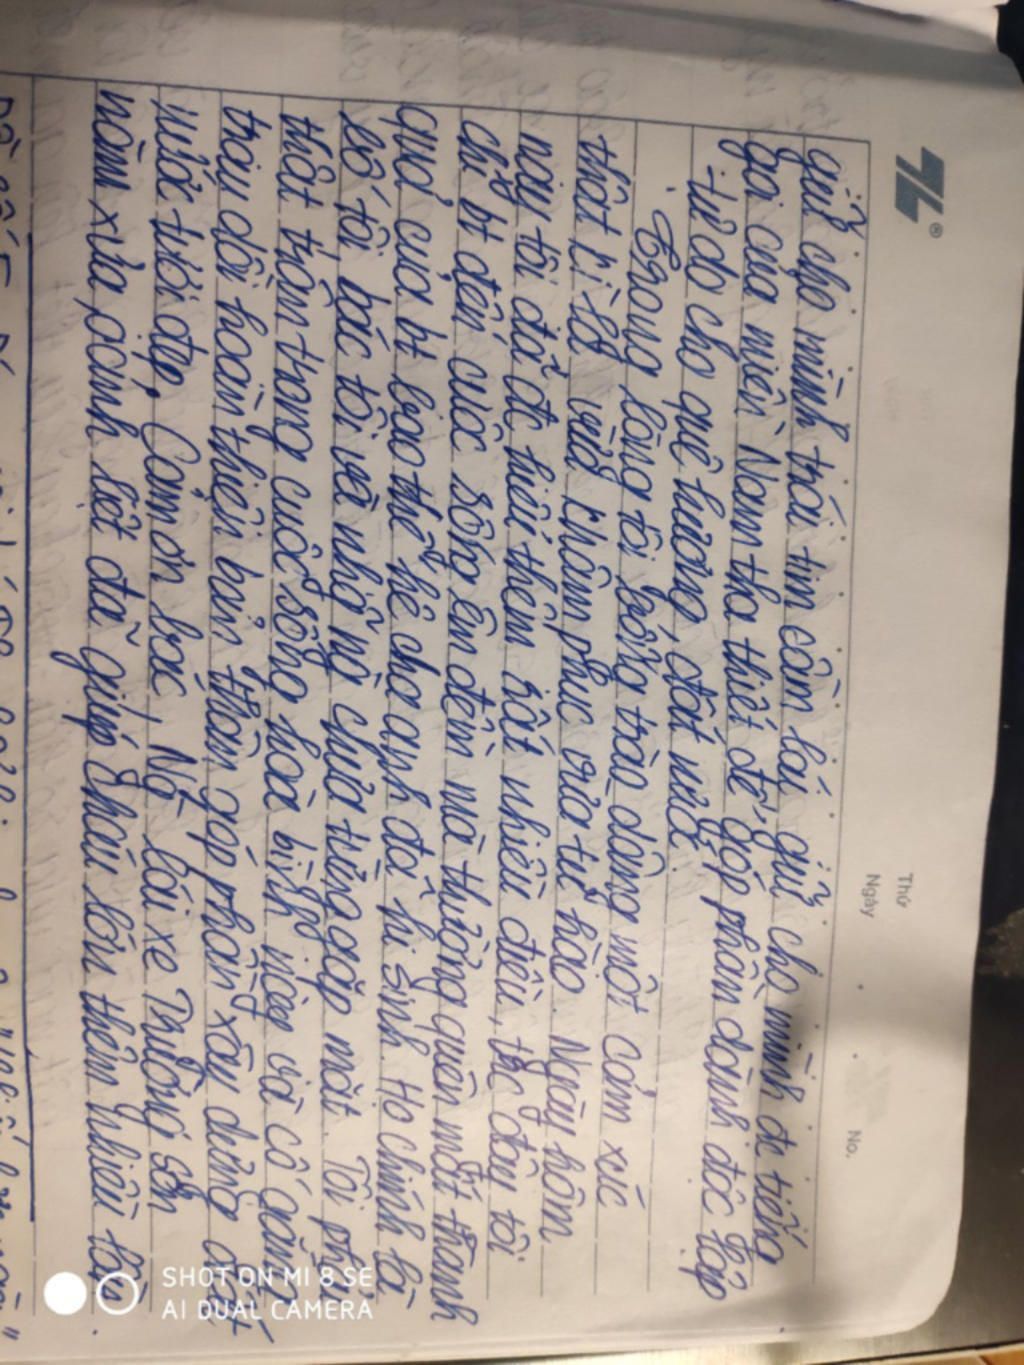 Thứ
Ngày
No.
gửi cho mình trái tim cầm lái, gửi cho mình đc tiếng
gọi của miền Nam tha thiết để góp phần dành độc lập
tự do cho quê hương, đất nước.
Trong lòng tôi bỗng trào dâng một cảm xúc
thật kì lạ vừa khâm phục vừa tự hào. Ngày hôm
nay tôi đã đc hiểu thêm rất nhiều điều, trc đây tôi
chỉ bt đến cuộc sống êm đềm mà thường quên mất thành
quả của bt bao thế hệ cha anh đã hi sinh. Họ chính là
bố tôi bác tôi và những ng chưa từng gặp mặt. Tôi phải
thật trân trọng cuộc sống hoà bình này và cố gắng
trau dồi hoàn thiện bản thân góp phần xây dựng đất
nước tươi đẹp. Cảm ơn bác, Ng lái xe Trường Sơn
năm xưa, oanh liệt đã giúp cháu lớn thêm nhiều lần.
SHOT ON MI 8 SE
AI DUAL CAMERA